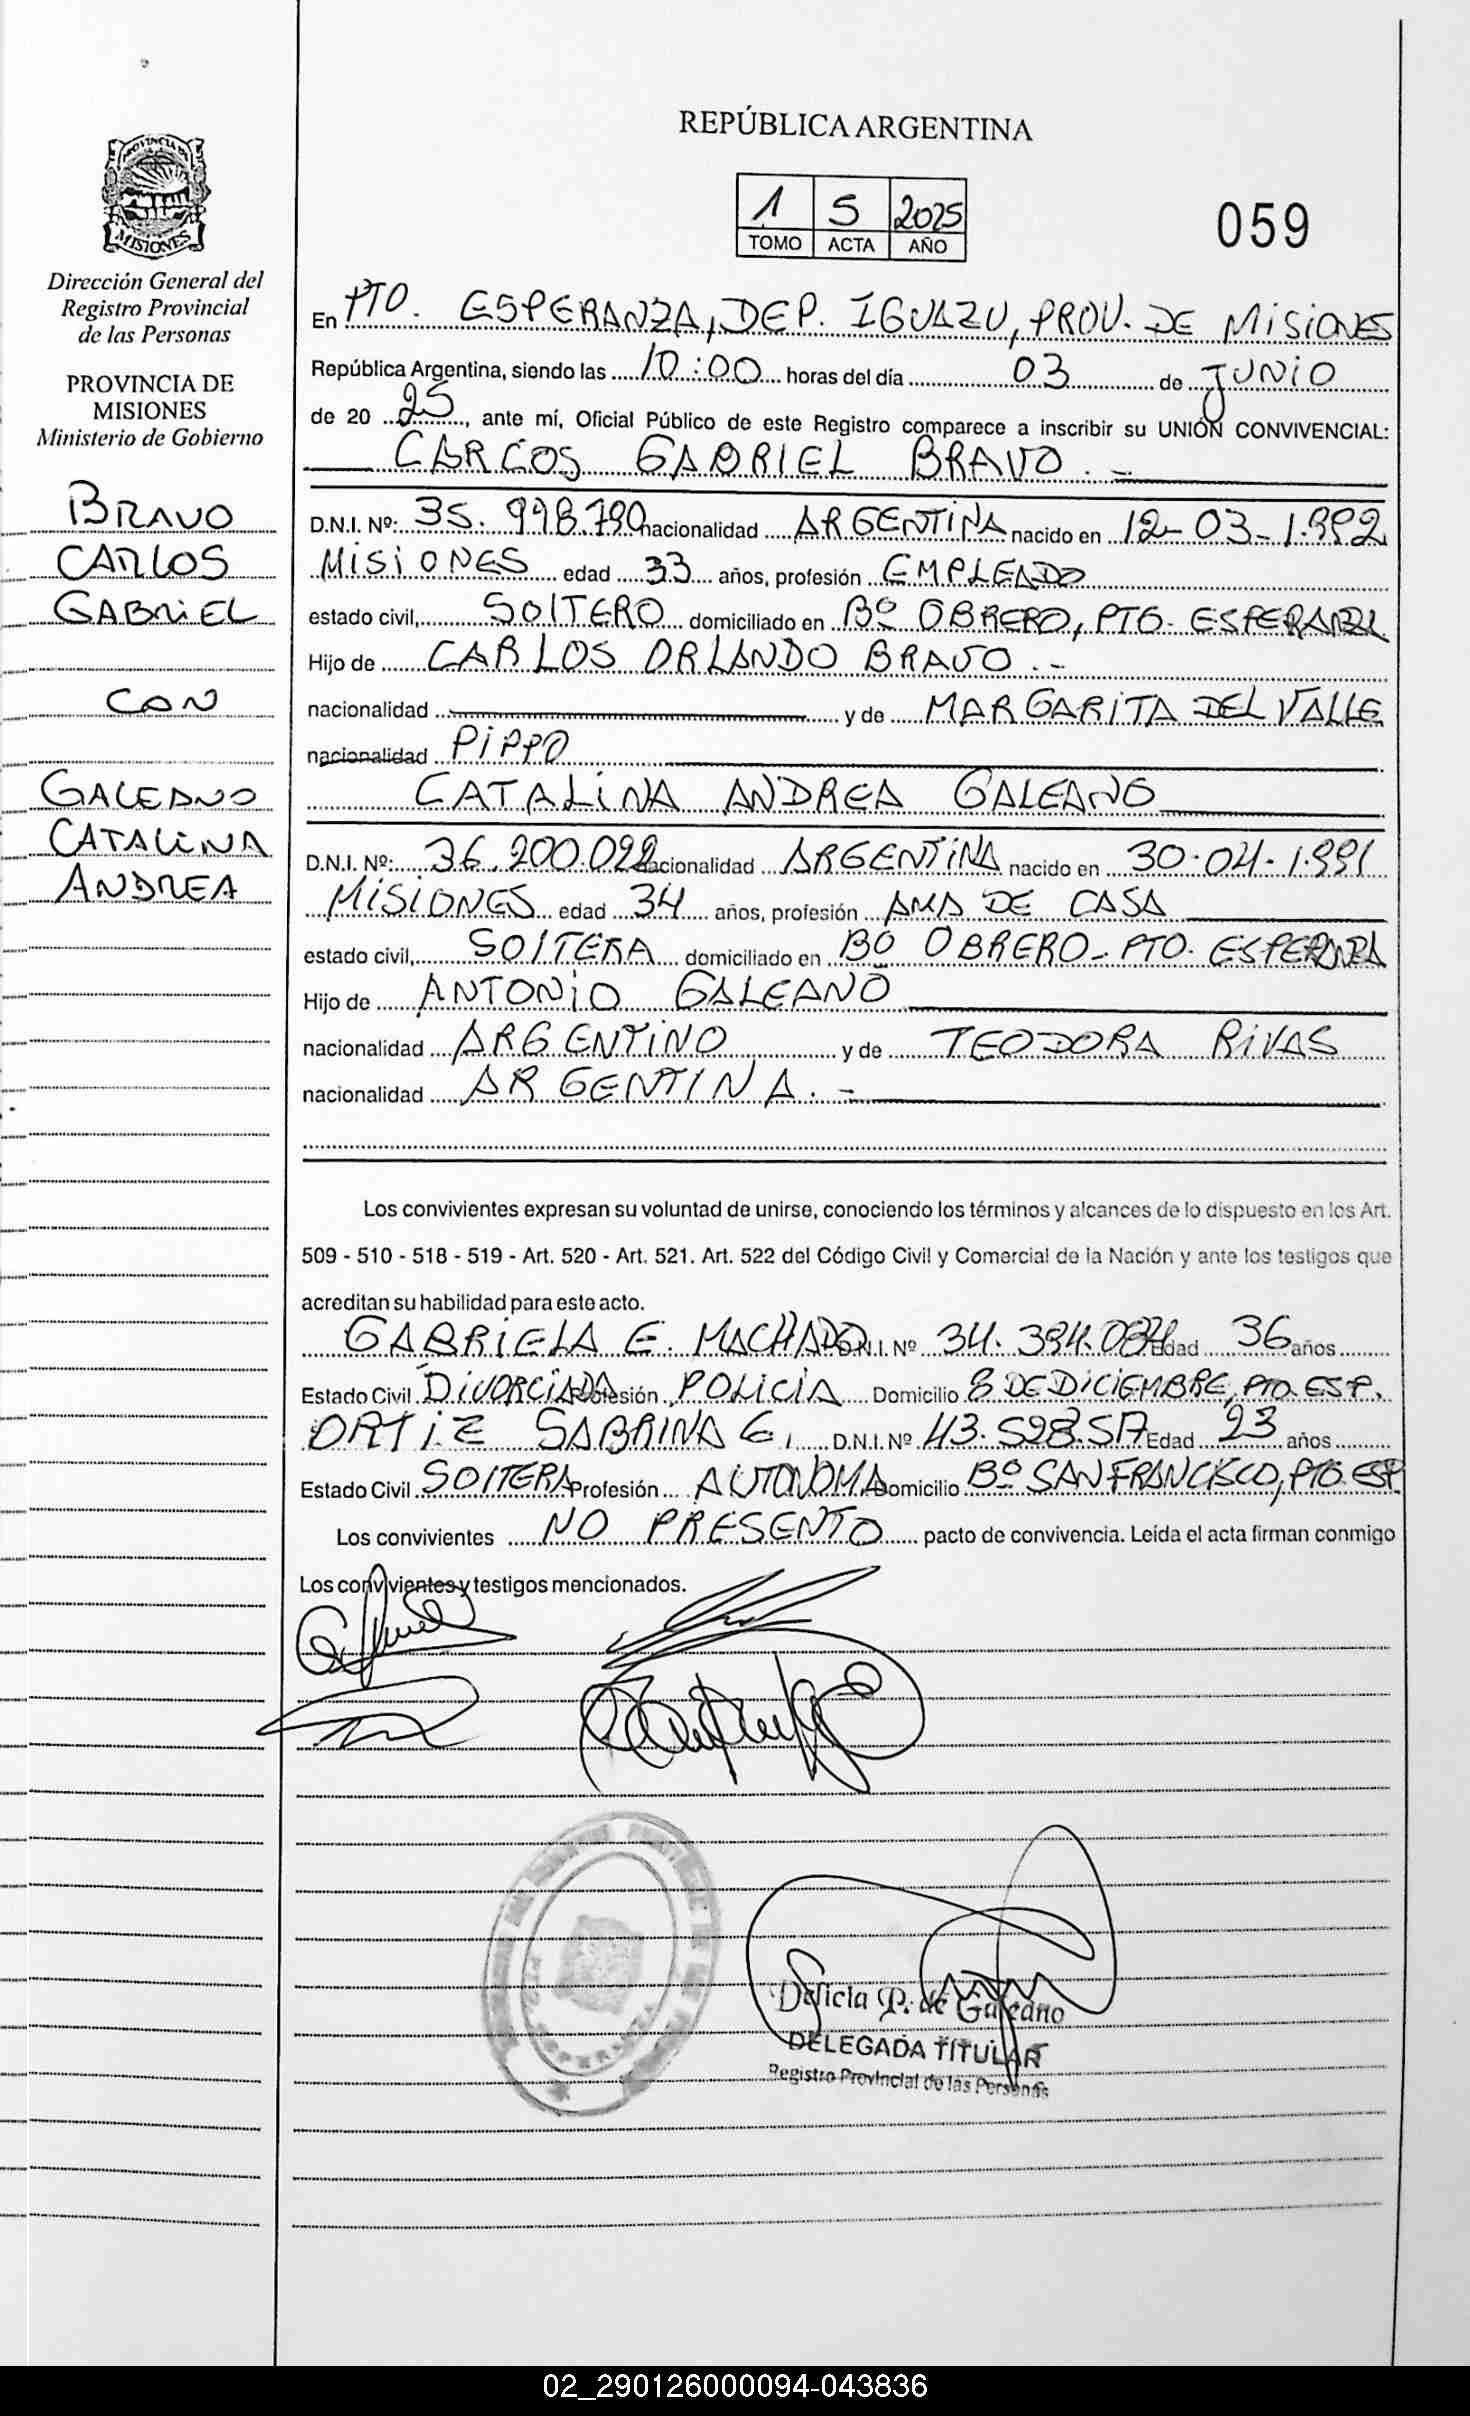 PROVINCIA DE
MISIONES
Dirección General del
Registro Provincial
de las Personas
PROVINCIA DE
MISIONES
Ministerio de Gobierno
BRAVO
CARLOS
GABRIEL
CON
GALEANO
CATALINA
ANDREA
REPÚBLICA ARGENTINA
1 5 2025
TOMO ACTA AÑO
059
En PTO. ESPERANZA, DEP. IGUAZU, PROV. DE MISIONES
República Argentina, siendo las 10:00 horas del día 03 de JUNIO
de 20 25, ante mí, Oficial Público de este Registro comparece a inscribir su UNIÓN CONVIVENCIAL:
CARLOS GABRIEL BRAVO.-
D.N.I. Nº: 35.998.790 nacionalidad ARGENTINA nacido en 12-03-1.992
MISIONES edad 33 años, profesión EMPLEADO
estado civil, SOLTERO domiciliado en Bº OBRERO, PTO. ESPERANZA
Hijo de CARLOS ORLANDO BRAVO.-
nacionalidad y de MARGARITA DEL VALLE
nacionalidad PIPPO
CATALINA ANDREA GALEANO
D.N.I. Nº: 36.200.022 nacionalidad ARGENTINA nacido en 30-04-1.991
MISIONES edad 34 años, profesión AMA DE CASA
estado civil, SOLTERA domiciliado en Bº OBRERO - PTO. ESPERANZA
Hijo de ANTONIO GALEANO
nacionalidad ARGENTINO y de TEODORA RIVAS
nacionalidad ARGENTINA.-
Los convivientes expresan su voluntad de unirse, conociendo los términos y alcances de lo dispuesto en los Art.
509 - 510 - 518 - 519 - Art. 520 - Art. 521. Art. 522 del Código Civil y Comercial de la Nación y ante los testigos que
acreditan su habilidad para este acto.
GABRIELA E. MACHADO D.N.I. Nº 34.394.084 Edad 36 años
Estado Civil DIVORCIADA Profesión POLICIA Domicilio 8 DE DICIEMBRE, PTO. ESP.
ORTIZ SABRINA G, D.N.I. Nº 43.528.517 Edad 23 años
Estado Civil SOLTERA Profesión AUTONOMA Domicilio Bº SAN FRANCISCO, PTO. ESP.
Los convivientes NO PRESENTO pacto de convivencia. Leída el acta firman conmigo
Los convivientes y testigos mencionados.
P. de Galeano
DELEGADA TITULAR
Registro Provincial de las Personas
02_290126000094-043836